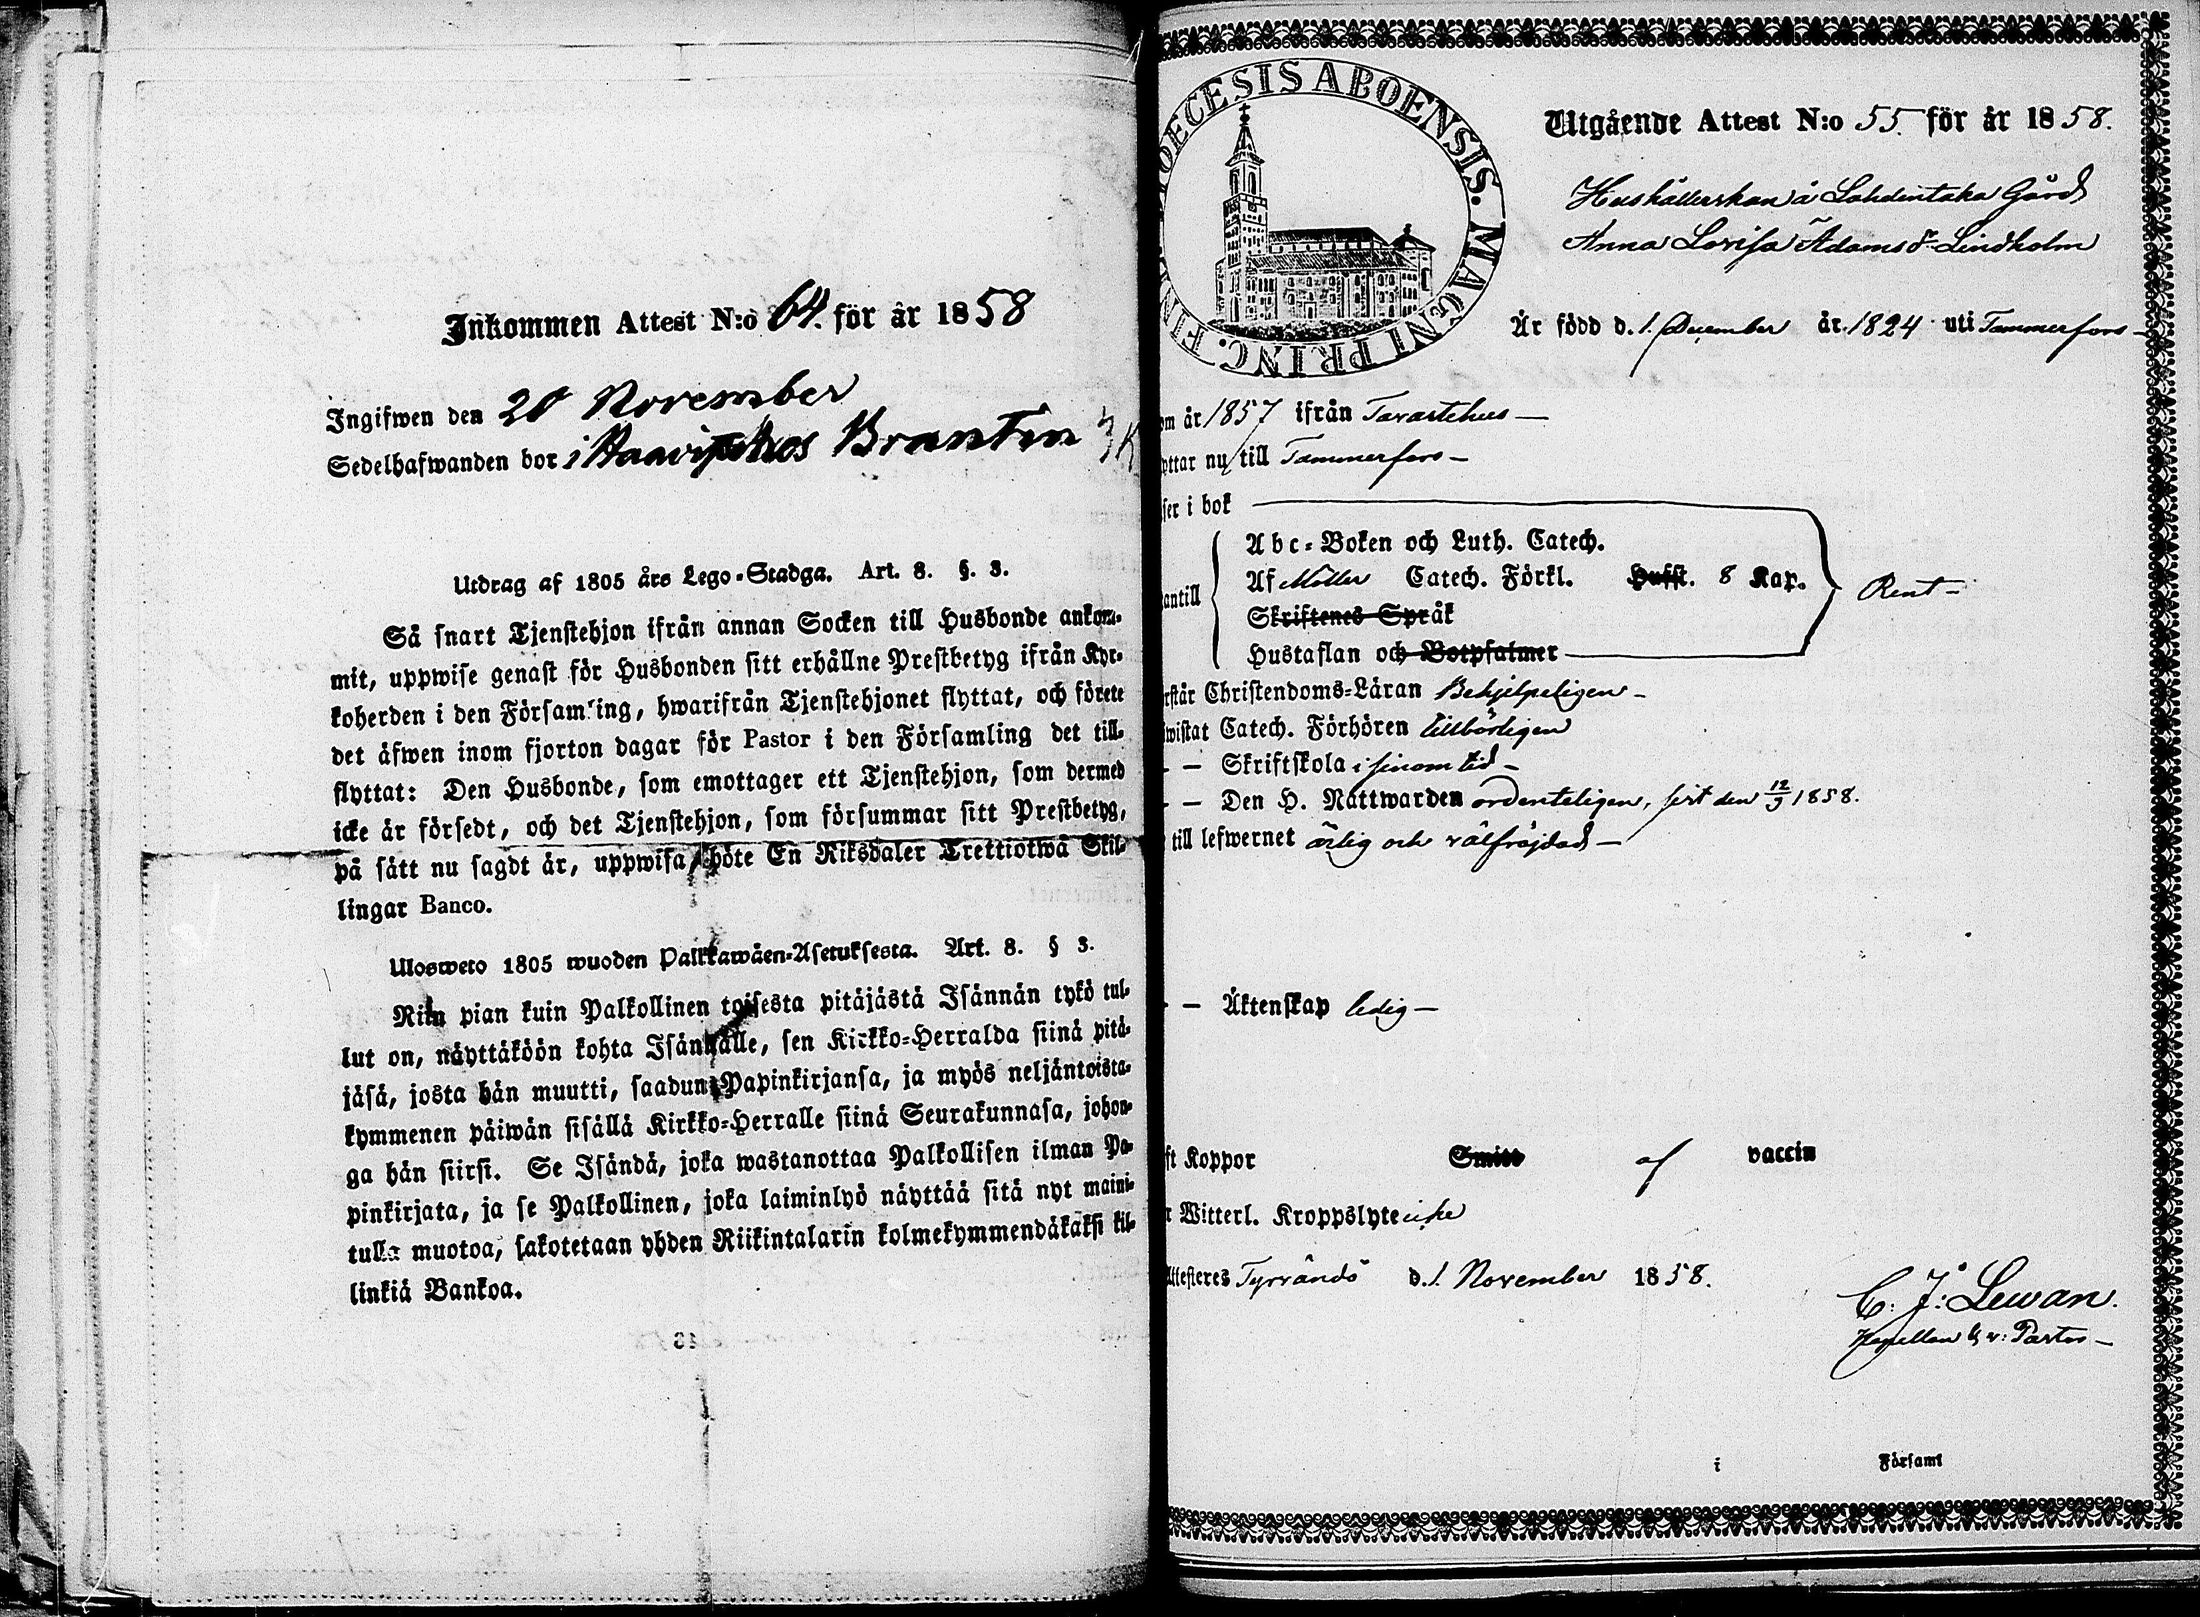 Inkommen Attest N:o 64. för år 1858
Ingifwen den 20 November
Sedelhafwanden bor i
Utdrag af 1805 års Lego-Stadga. Art. 8. §. 3.
Så snart Tjenstehjon ifrån annan Socken till Husbonde ankom-
mit, uppwise genast för Husbonden sitt erhållne Prestbetyg ifrån Kyr-
koherden i den Församling, hwarifrån Tjenstehjonet flyttat, och förete
det äfwen inom fjorton dagar för Pastor i den Församling det till-
flyttat: Den Husbonde, som emottager ett Tjenstehjon, som dermed
icke är försedt, och det Tjenstehjon, som försummar sitt Prestbetyg,
på sätt nu sagdt är, uppwisa, böte En Riksdaler Trettiotwå Skil-
lingar Banco.
Ulosweto 1805 wuoden Palkkawäen-Asetuksesta. Art. 8. § 3.
Niin pian kuin Palkollinen toisesta pitäjästä Isännän tykö tul-
lut on, näyttäköön kohta Isännälle, sen Kirkko-Herralda siinä pitä-
jäsä, josta hän muutti, saadun Papinkirjansa, ja myös neljäntoista-
kymmenen päiwän sisällä Kirkko-Herralle siinä Seurakunnasa, johon-
ga hän siirsi. Se Isändä, joka wastanottaa Palkollisen ilman Pa-
pinkirjata, ja se Palkollinen, joka laiminlyö näyttää sitä nyt maini-
tulla muotoa, sakotetaan yhden Riikintalarin kolmekymmendäkaksi kil-
linkiä Bankoa.
DIOECESIS ABOENSIS. MAGNI PRINC. FIN
Utgående Attest N:o 55. för år 1858.
Hushållerskan å Lahdentaka Gård
Anna Lovisa Adams dr Lindholm
Är född d. 1. December år 1824 uti Tammerfors
om år 1857 ifrån Tavastehus
yttar nu till Tammerfors
ser i bok
Abc-Boken och Luth. Catech.
antill Af Möller Catech. Förkl. Husft. 8 Kap. Rent
Skriftenes Språk
Hustaflan och Botpsalmer
rstår Christendoms-Läran Behjelpeligen
wistat Catech. Förhören tillbörligen
— Skriftskola i sinom tid
— Den H. Nattwarden ordenteligen, sist den 12/9 1858.
till lefwernet ärlig och välfräjdad
— Äktenskap ledig
ft Koppor Smitt af vaccin
r Witterl. Kroppslyte icke
Attesteres Tyrvändö d. 1. November 1858.
C. J. Lewan.
Kapellan & v: Pastor
i Församl